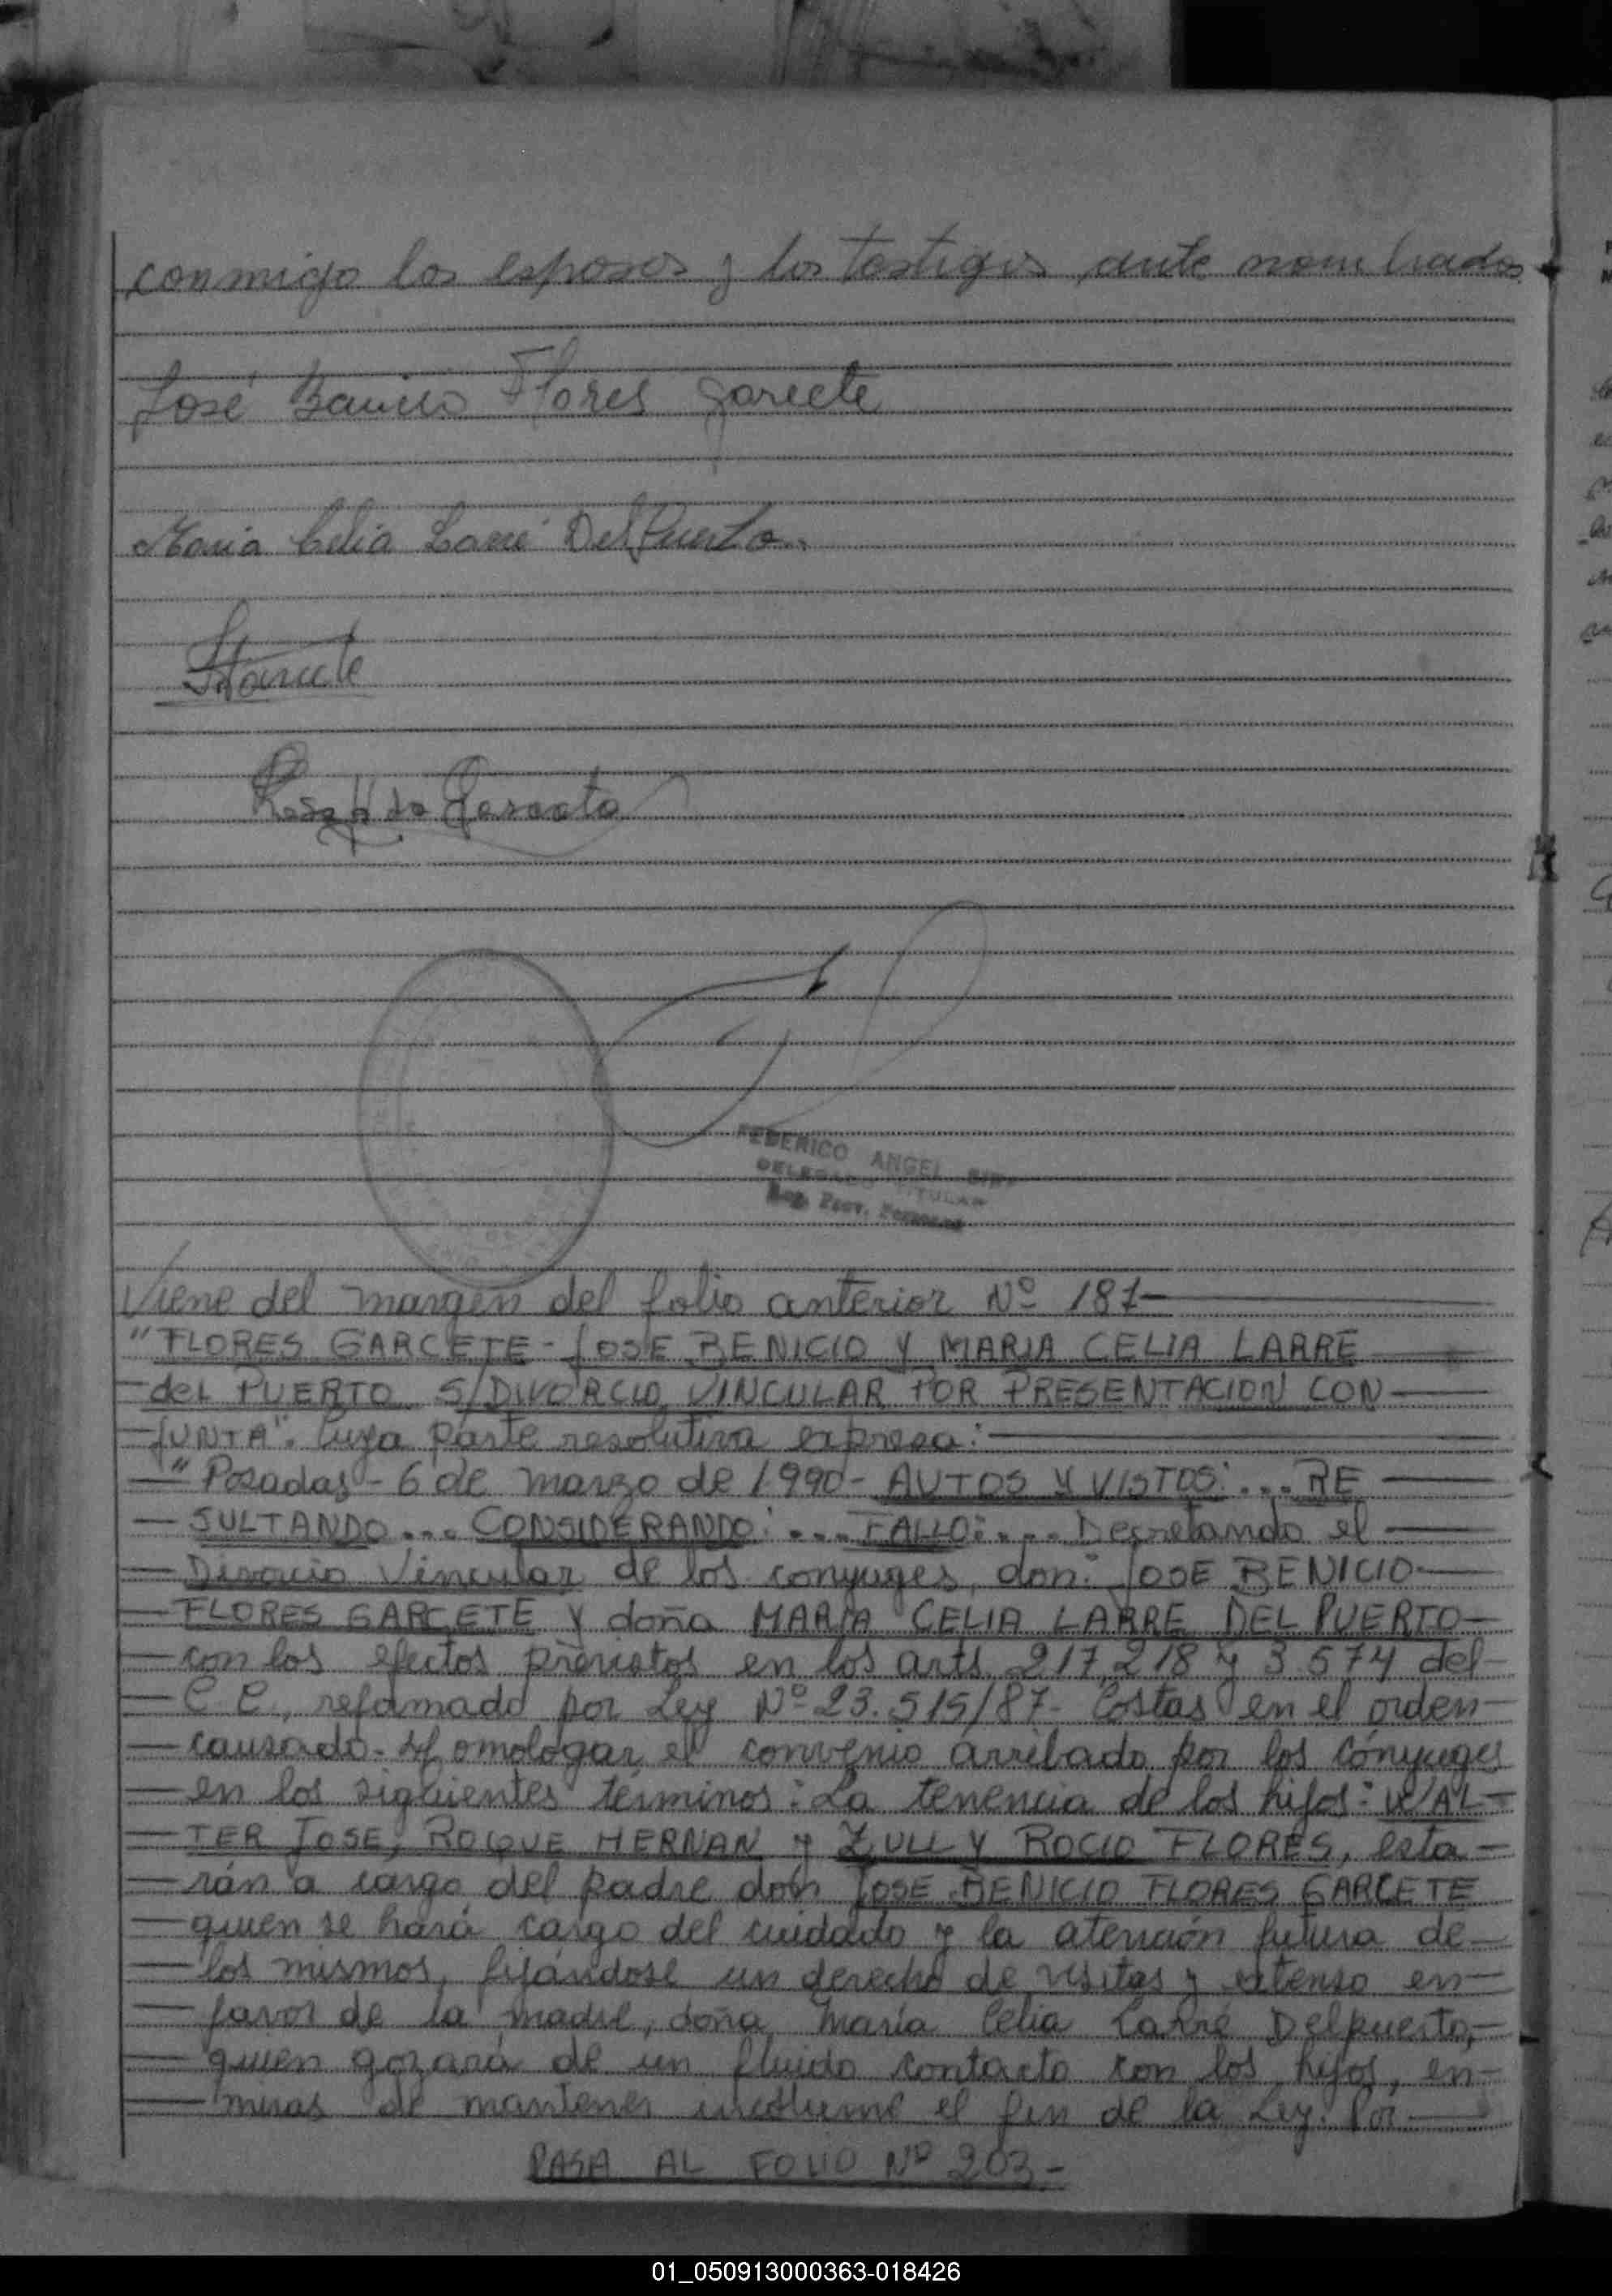 conmigo los esposos y los testigos ante nombrados
José Flores Garcete
Maria Celia Larré DelPuerto.
FEDERICO ANGEL
DELEGADO TITULAR
Reg. Prov.
Viene del margen del folio anterior Nº 187-
"FLORES GARCETE - JOSE BENICIO Y MARIA CELIA LARRE
del PUERTO S/DIVORCIO VINCULAR POR PRESENTACION CON
JUNTA". Cuya parte resolutiva expresa:
" Posadas - 6 de marzo de 1990 - AUTOS Y VISTOS: ... RE
SULTANDO ... CONSIDERANDO: ... FALLO: ... Decretando el
Divorcio Vincular de los conyuges, don: JOSE BENICIO
FLORES GARCETE y doña MARIA CELIA LARRE DEL PUERTO
con los efectos previstos en los arts 217, 218 y 3574 del
C C, refomado por Ley Nº 23.515/87 - Costas en el orden
causado - Homologar el convenio arribado por los cónyuges
en los siguientes términos: La tenencia de los hijos: WAL-
TER JOSE, ROQUE HERNAN y ZULLY ROCIO FLORES, esta-
rán a cargo del padre don JOSE BENICIO FLORES GARCETE
quien se hará cargo del cuidado y la atención futura de
los mismos, fijándose un derecho de visitas y extenso en
favor de la madre, doña María Celia Larré Delpuerto,
quien gozará de un fluido contacto con los hijos, en
miras de mantener incolume el fin de la Ley. Por
PASA AL FOLIO Nº 203-
01_050913000363-018426